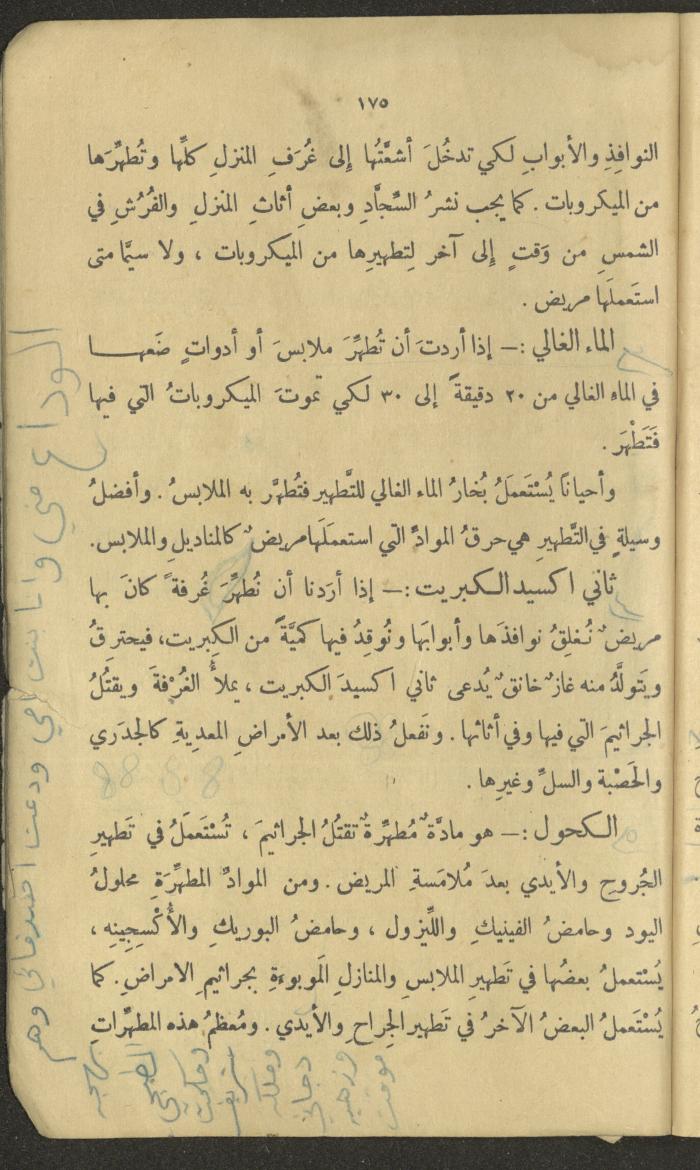 ١٧٥
النوافِذِ والأبوابِ لكي تدخُلَ أشعَّتُها إِلى غُرَفِ المنزلِ كلِّها وتُطهِّرَها
من الميكروبات . كما يجب نشرُ السَّجَّادِ وبعضِ أثاثِ المنزلِ والفُرُشِ في
الشمسِ من وَقتٍ إِلى آخر لِتطهيرِها من الميكروبات ، ولا سيَّما متى
استَعملَها مريض .
الماء الغالي :— إذا أردتَ أن تُطهِّرَ ملابسَ أو أدواتٍ ضَعهــا
في الماءِ الغالي من ٢٠ دقيقةً إلى ٣٠ لكي تموتَ الميكروباتُ التي فيها
فَتَطْهَر .
وأحياناً يُسْتَعمَلُ بُخارُ الماء الغالي للتَّطهير فتُطهَّر به الملابسُ . وأفضلُ
وسيلةٍ في التَّطهيرِ هي حرقُ الموادِّ التي استعمَلَها مريضٌ كالمناديلِ والملابس.
ثاني اكسيد الكبريت :— إذا أرَدنا أن نُطهِّرَ غُرفةً كانَ بها
مريضٌ نُغلِقُ نوافذَها وأبوابَها ونُوقِدُ فيها كميَّةً من الكِبريت، فيحترِقُ
ويَتولَّدُ منه غازٌ خانقٌ يُدعى ثاني اكسيدَ الكبريت ، يملأُ الغُرْفةَ ويقتُلُ
الجراثيمَ التي فيها وفي أثاثها . ونَفعلُ ذلك بعد الأمراضِ المعديةِ كالجدَري
والحَصْبة والسلِّ وغيرِها .
الكحول :— هو مادَّةٌ مُطهِّرةٌ تقتُلُ الجراثيمَ ، تُسْتَعمَلُ في تَطهيرِ
الجُروحِ والأيدي بعدَ مُلامَسةِ المريض . ومن الموادِّ المطهِّرَةِ محلولُ
اليود وحامضُ الفينيكِ واللِّيزول ، وحامضُ البوريكِ والأُكْسجِينِه ،
يُسْتعملُ بعضُها في تَطهيرِ الملابسِ والمنازلِ المَوبوءةِ بجراثيمِ الامراضِ . كما
يُسْتَعملُ البعضُ الآخرُ في تَطهير الجِراحِ والأيدي . ومُعظمُ هذه المطهِّراتِ
الوداع مني وانا بنت امي ودعت